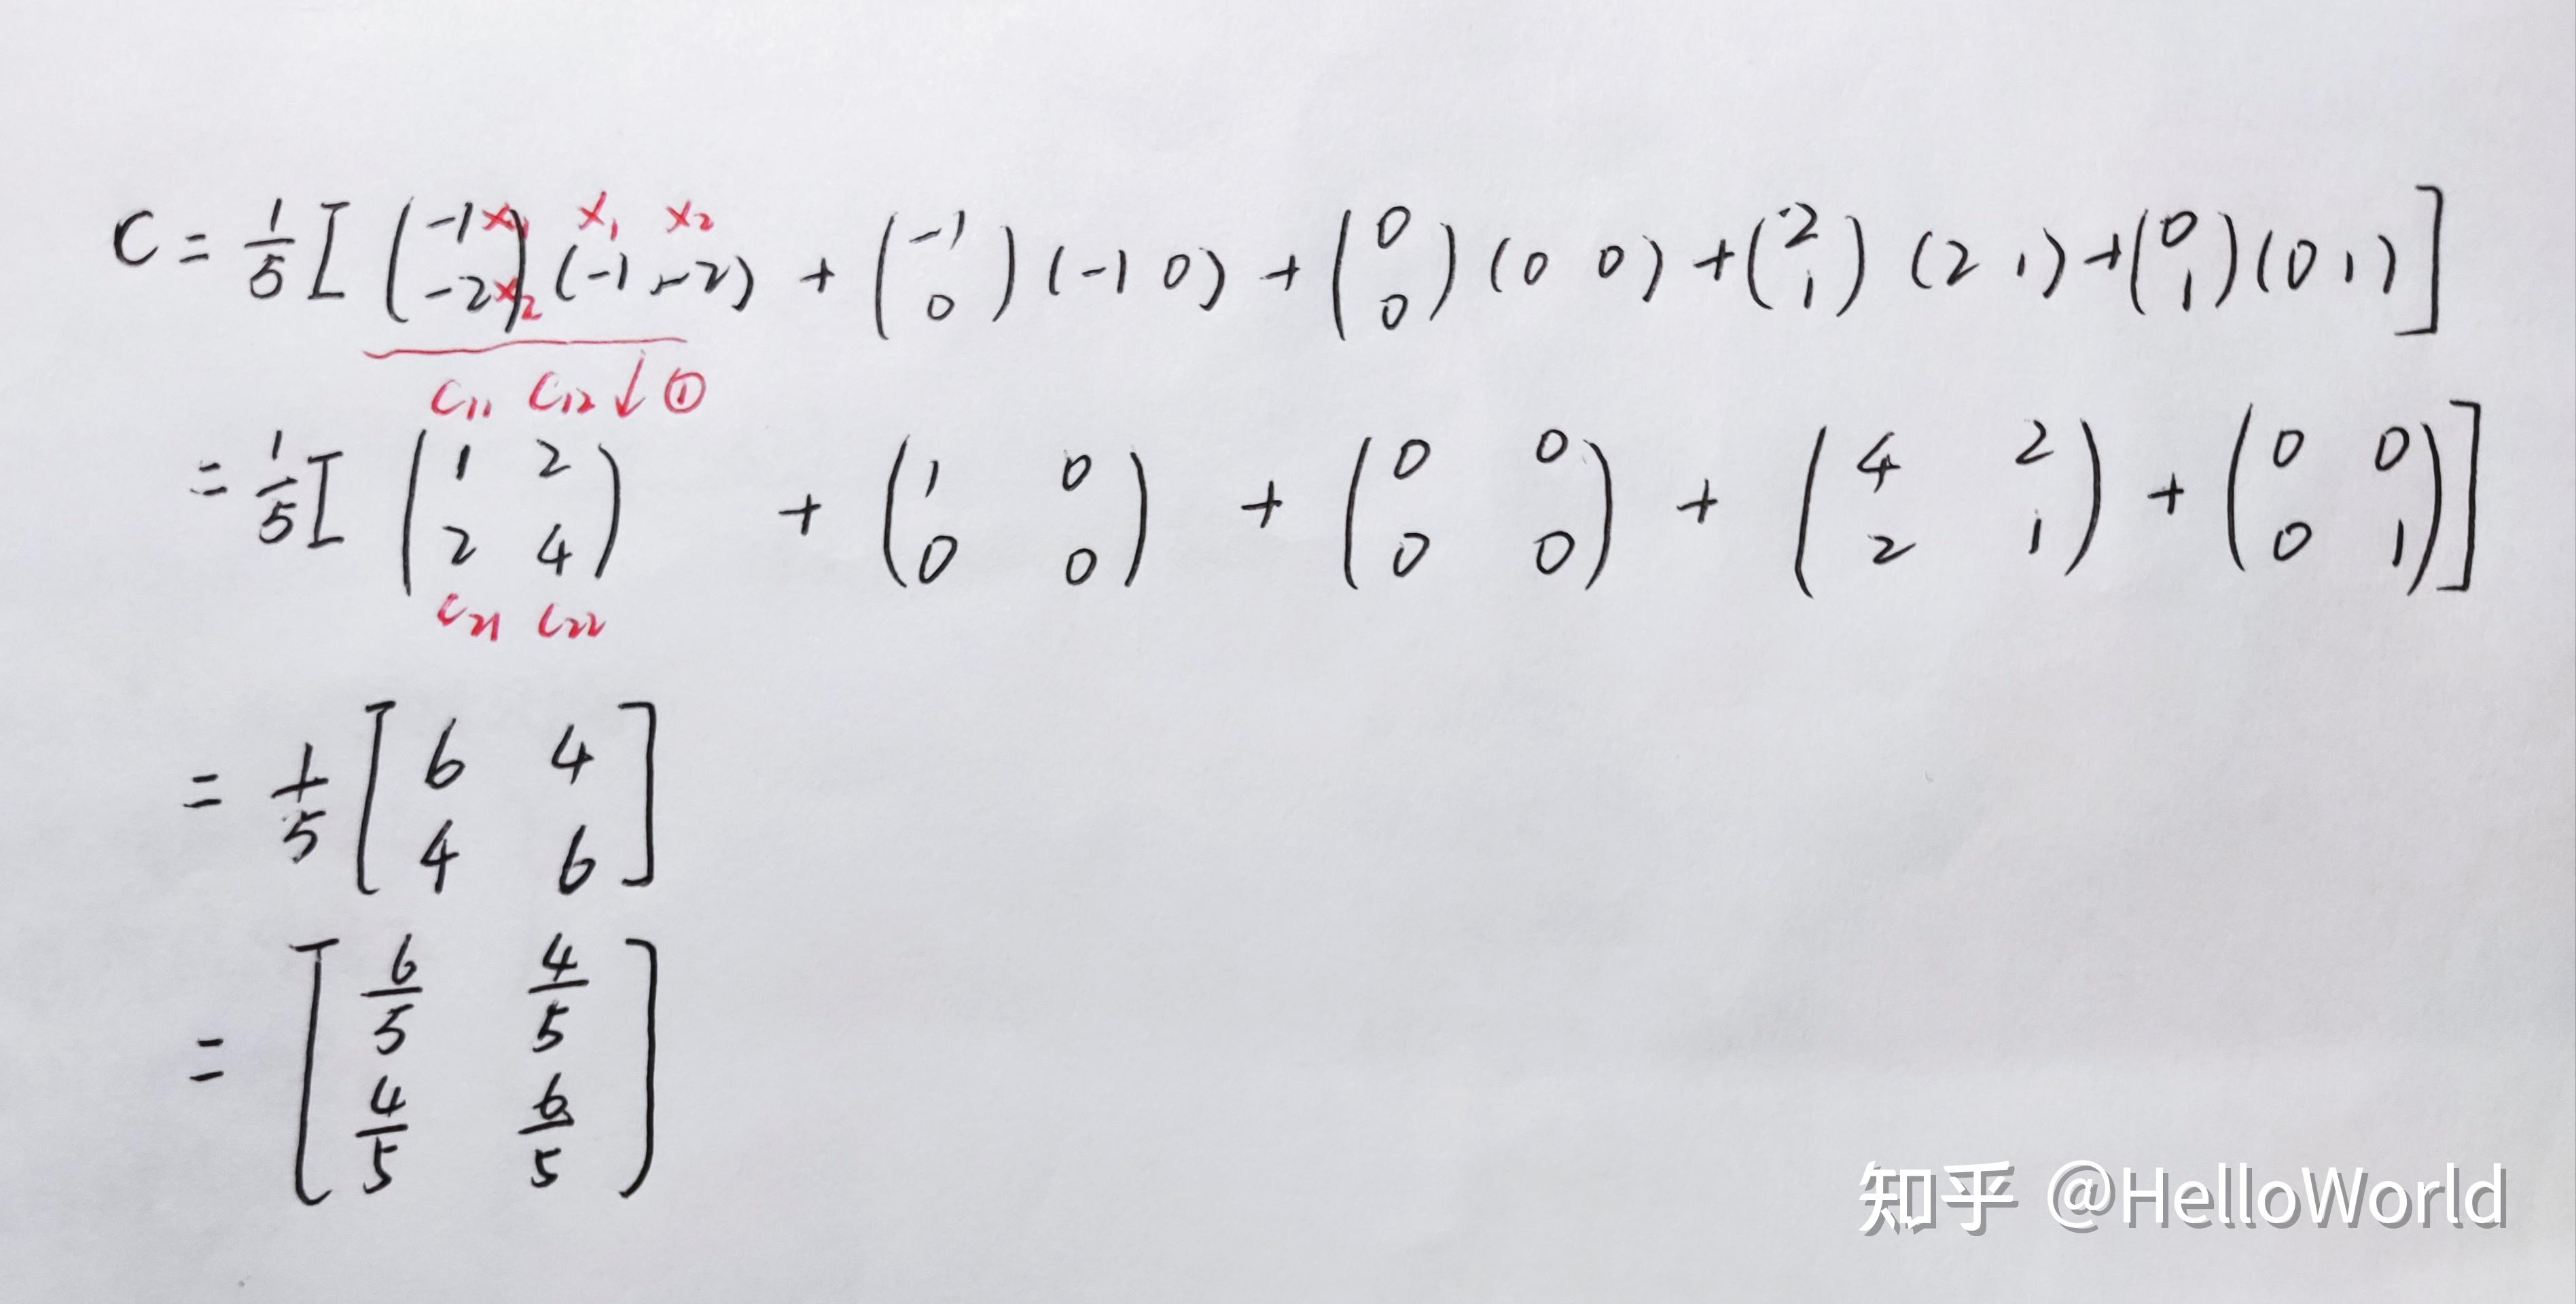 x₁ x₁ x₂
C = 1/5 [ (-1 -2)ᵀ (-1 -2) + (-1 0)ᵀ (-1 0) + (0 0)ᵀ (0 0) + (2 1)ᵀ (2 1) + (0 1)ᵀ (0 1) ]
x₂
C₁₁ C₁₂ ↓ ①
= 1/5 [ (1 2; 2 4) + (1 0; 0 0) + (0 0; 0 0) + (4 2; 2 1) + (0 0; 0 1) ]
C₂₁ C₂₂
= 1/5 [6 4; 4 6]
= [6/5 4/5; 4/5 6/5]
知乎 @HelloWorld